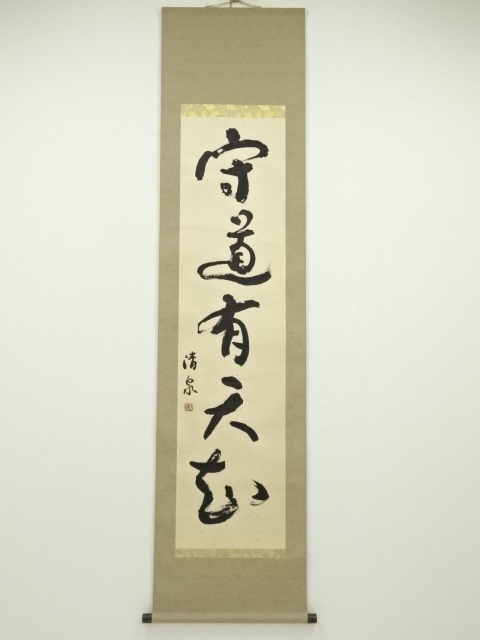 守道有天知
清泉